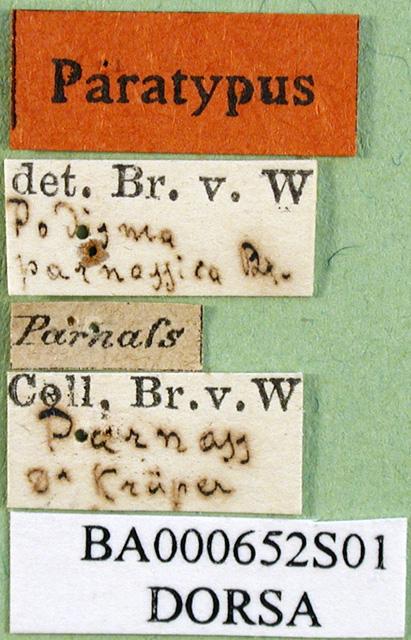 Paratypus
det. Br. v. W
parnassica Br.
Parnaſs
Coll. Br. v. W
Parnass
Dr Krüper
BA000652S01
DORSA